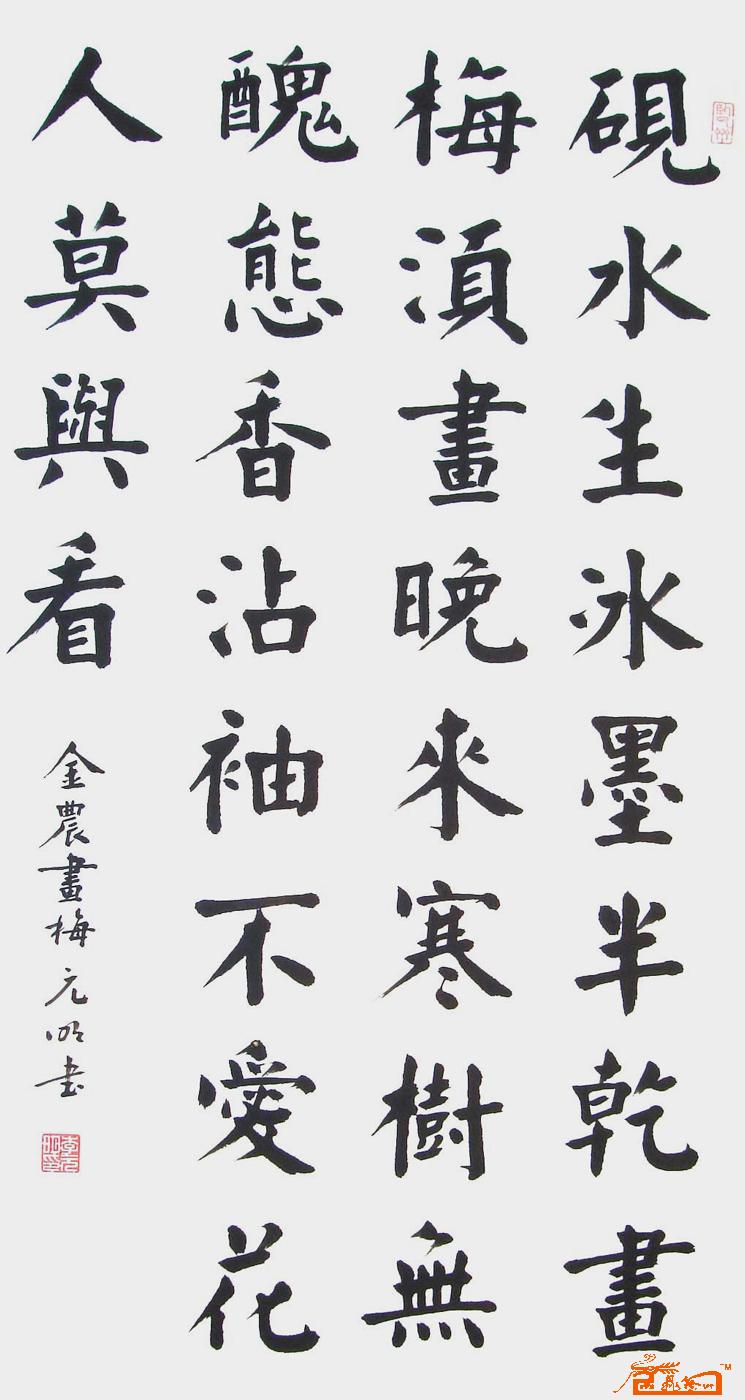 硯水生冰墨半乾畫
梅須畫晚來寒樹無
醜態香沾袖不愛花
人莫與看
金農畫梅 元明书